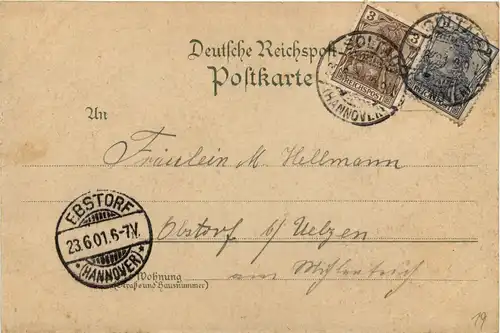 Deutsche Reichspost
Postkarte
3
SOLTAU
(HANNOVER)
3
SOLTAU
(HANNOVER)
An
Fräulein M Hellmann
Ebstorf b/ Uelzen
am Mühlenteich
EBSTORF
23.6.01.6-7V.
*(HANNOVER)*
Wohnung
(Straße und Hausnummer)
19